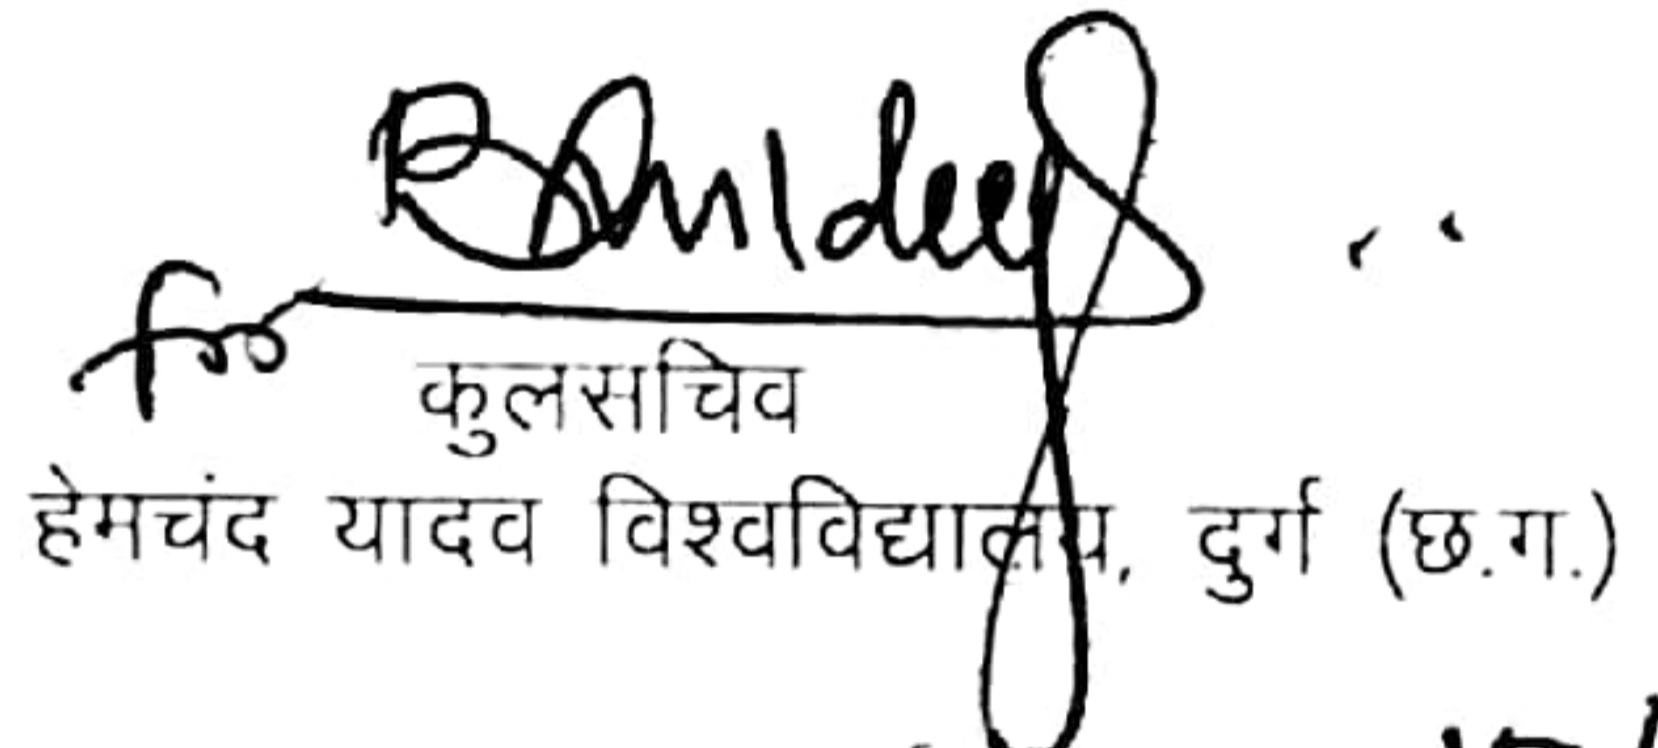 for
कुलसचिव
हेमचंद यादव विश्वविद्यालय, दुर्ग (छ.ग.)